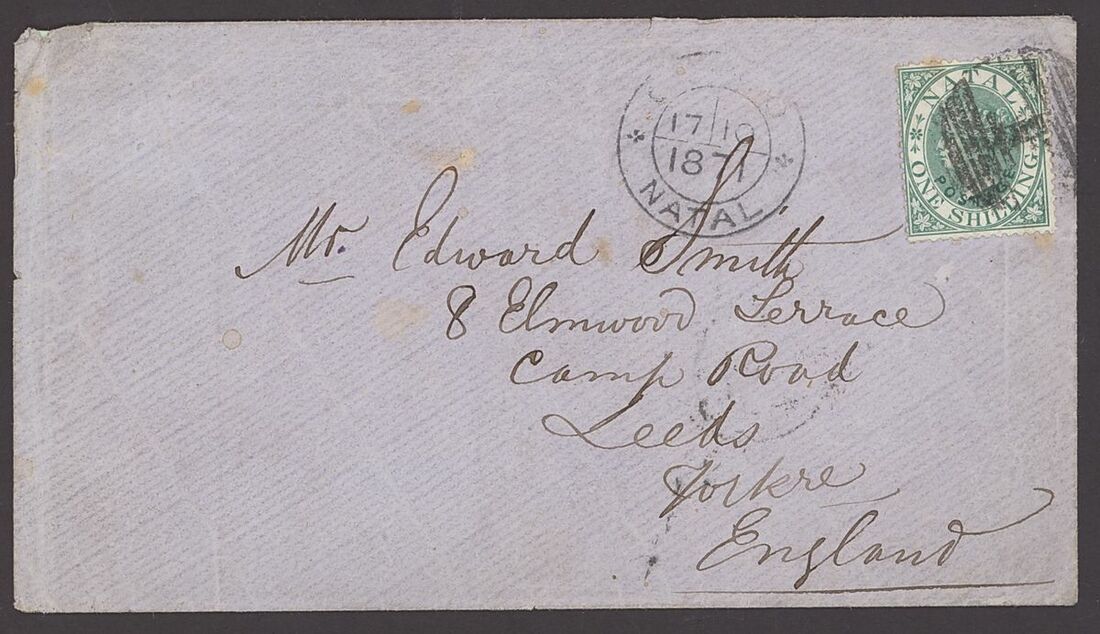 17 10
1871
NATAL
NATAL
POSTAGE
ONE SHILLING
Mr. Edward Smith
8 Elmwood Terrace
Camp Road
Leeds
Yorkre
England